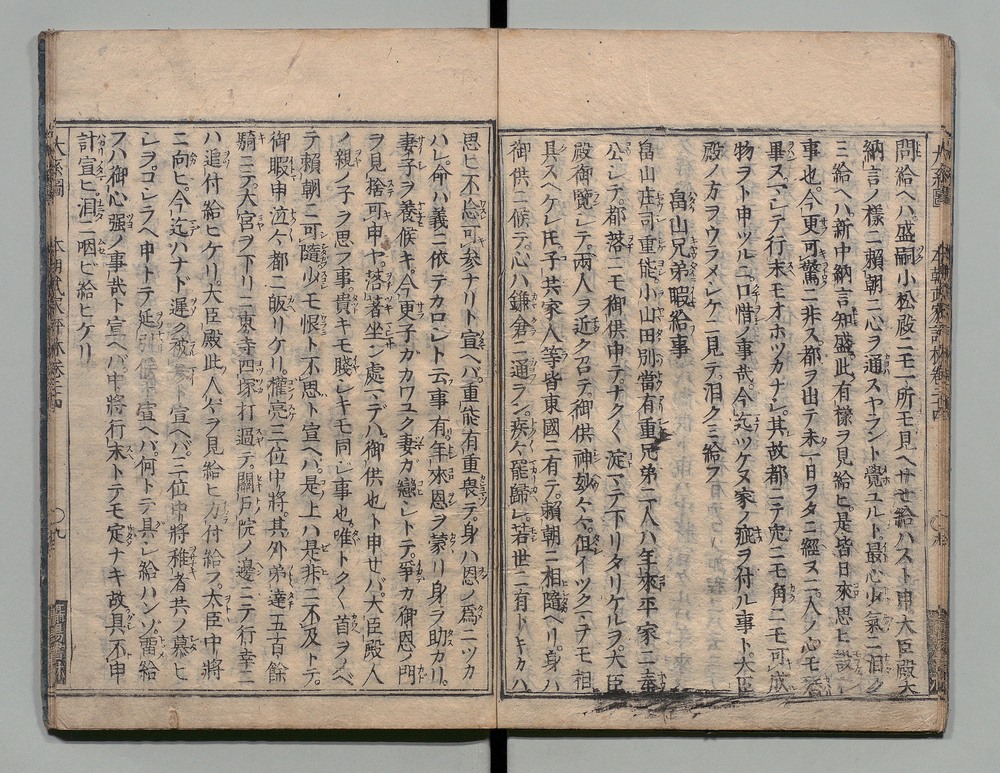 問給ヘハ盛嗣小松殿ニモ一所モ見ヘサセ給ハスト申大臣殿大
納言ノ様ニ頼朝ニ心ヲ通スヤラント覺ユルト最心少氣ニ泪ク
ミ給ヘハ新中納言知盛此有様ヲ見給ヒ是皆日來思ヒ設シ
事也今更可驚ニ非ス都ヲ出テ未一日ヲタニ經ヌニ人ノ心モ
畢ヌマシテ行末モオホツカナシ其故都ニテ兎ニモ角ニモ可成
物ヲト申ツルニ口惜ノ事哉今迄ツケヌ家ノ疵ヲ付ル事ト大臣
殿ノ方ヲウラメシケニ見テ泪クミ給フ
畠山兄弟暇給事
畠山庄司重能小山田別當有重兄弟二人ハ年來平家ニ奉
公シテ都落ニモ御供申テナクナク淀マテ下リタリケルヲ大臣
殿御覽シテ兩人ヲ近クメシテ御供神妙々々但イツクマテモ相
具スヘケレ𪜈子共家人等皆東國ニ有テ頼朝ニ相隨ヘリ身ハ
御供ニ候テ心ハ鎌倉ニ通ラン疾々罷歸レ若世ニ有トキカハ
思ヒ不忘可參ナリト宣ヘバ重能有重畏テ身ハ恩ノ為ニツカ
ハレ命ハ義ニ依テカロシト云事有年來恩ヲ蒙リ身ヲ助カリ
妻子ヲ養候キ今更子カカワユク妻カ戀シトテ爭カ御恩ノ門
ヲ見捨可申ヤ落著坐ン處マデハ御供也ト申サバ大臣殿人
ノ親ノ子ヲ思フ事貴キモ賤シキモ同シ事也唯トクトク首ヲノベ
テ頼朝ニ可隨ルモ恨ト不思ト宣ヘハ是上ハ是非ニ不及トテ
御暇申泣々都ニ皈リケリ權亮三位中將其外弟達五百餘
騎ニテ大宮ヲ下リニ東寺四塚打過テ關戸院ノ邊ニテ行幸ニ
ハ追付給ヒケリ大臣殿此人々ヲ見給ヒ力付給フ大臣中將
ニ向ヒ今迄ハナド遲ク被參ト宣ヘハ三位中將稚者共ノ慕ヒ
シヲコシラヘ申トテ延引候ト宣ヘハ何トテ具シ給ハンゾ留給
フハ御心強ノ事哉ト宣ヘハ中將行末トテモ定ナキ故具不申
計宣ヒ泪ニ咽ヒ給ヒケリ